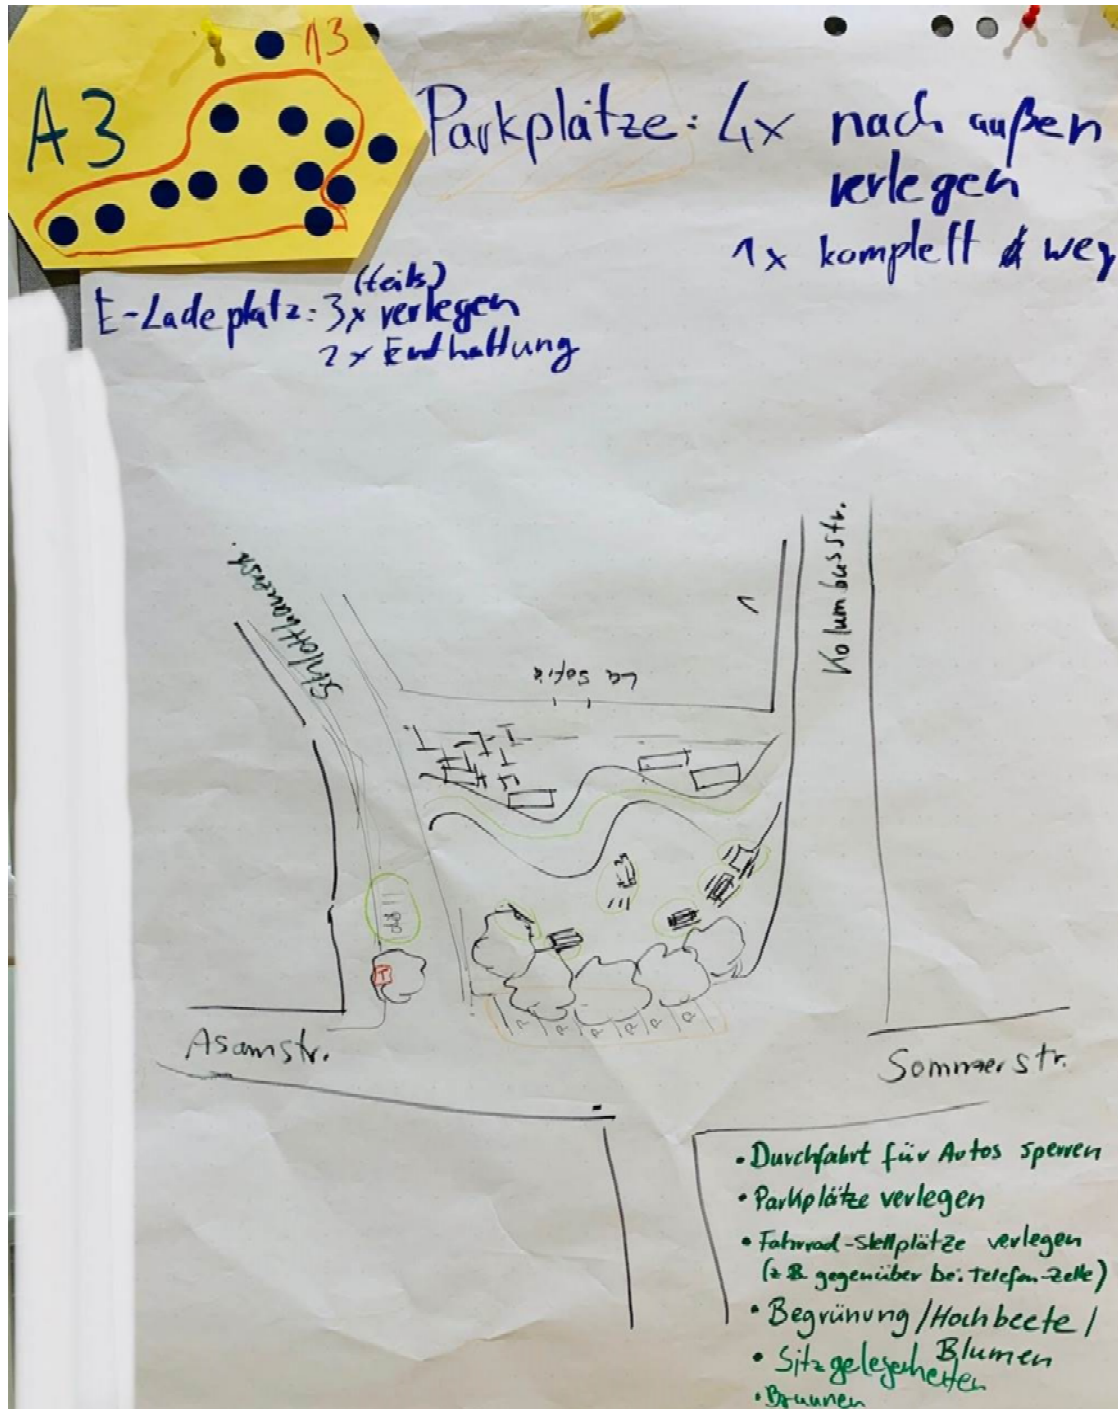 A3
13
Parkplätze: 4x nach außen
verlegen
1x komplett weg
(teils)
E-Ladeplatz: 3x verlegen
2x Enthaltung
Kolumbusstr.
La Sofia
T
P P P P P P
Asamstr.
Sommerstr.
• Durchfahrt für Autos sperren
• Parkplätze verlegen
• Fahrrad-Stellplätze verlegen
(z B gegenüber bei Telefon-Zelle)
• Begrünung/Hochbeete/
Blumen
• Sitzgelegenheiten
• Brunnen